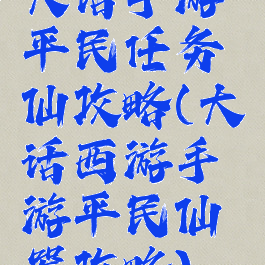 大话手游
平民任务
仙攻略(大
话西游手
游平民仙
器攻略)